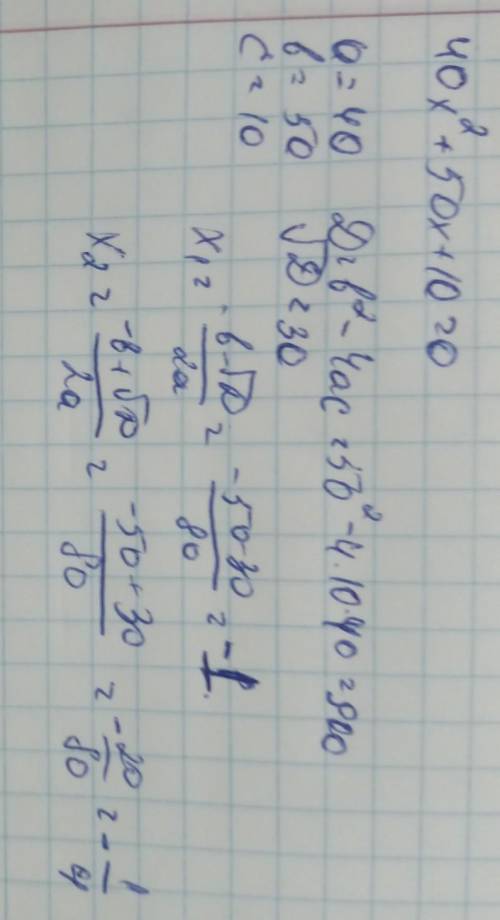 40x² + 50x + 10 = 0
a = 40
b = 50
c = 10
D = b² - 4ac = 50² - 4·10·40 = 900
√D = 30
x₁ = -b-√D / 2a = -50-30 / 80 = -1.
x₂ = -b+√D / 2a = -50+30 / 80 = -20 / 80 = -1 / 4